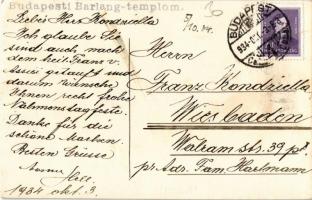 Budapesti Barlang-templom.
5/10.14.
30
BUDAPEST
934
Liebes Herr Kondziella
Ich glaube Sie
sind auch nach
dem heil. Franz v.
Assisi getauft und
darum wünsche
Ihnen recht frohe
Namenstag feste.
Danke für die
schöne Marken.
Besten Grüsse
1934 okt. 3.
Herrn
Franz Kondziella
Wiesbaden
Walram str. 39 pt.
pr. Adr. Fam Hartmann